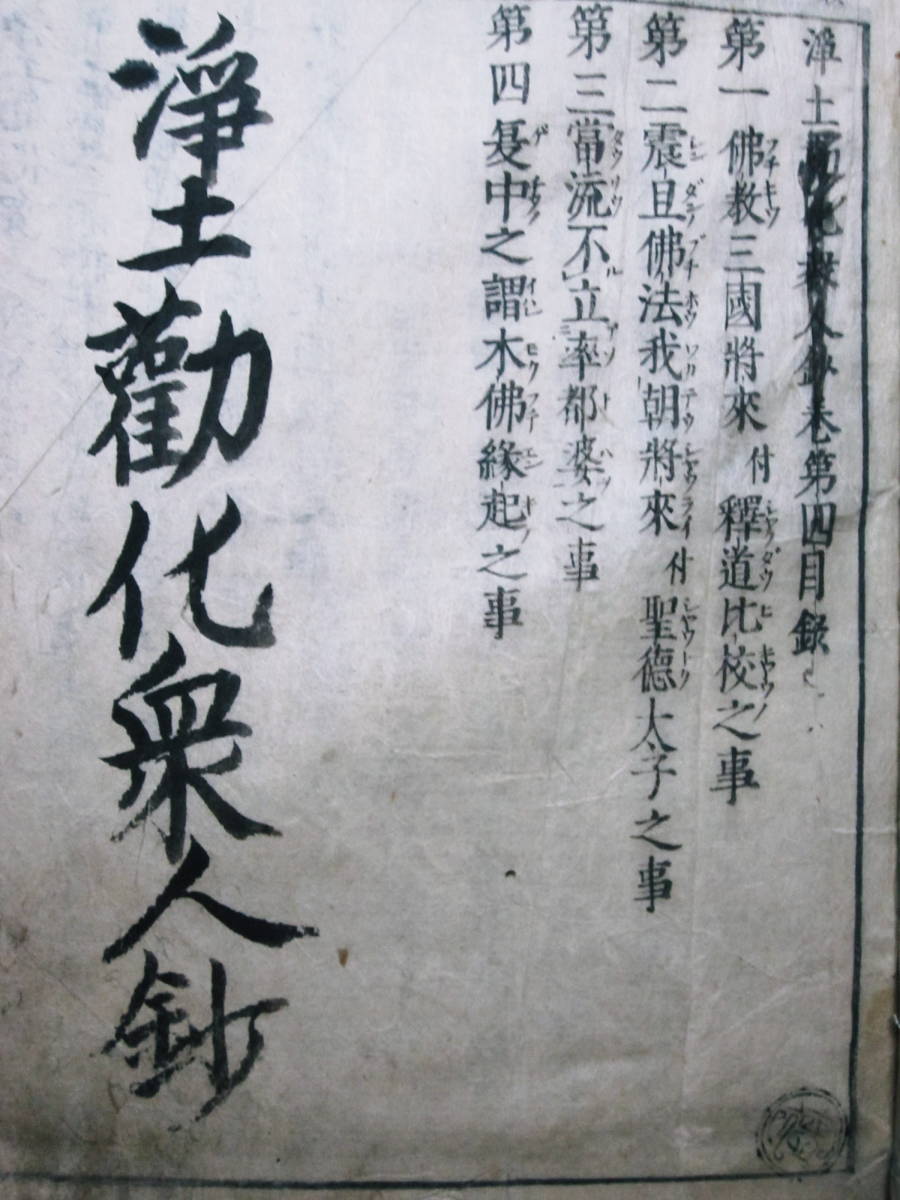 淨土勸化衆人鈔巻第四目録
第一佛教三國將來付釋道比校之事
第二震旦佛法我朝將來付聖德太子之事
第三當流不立率都婆之事
第四夏中之謂木佛緣起之事
淨土勸化衆人鈔